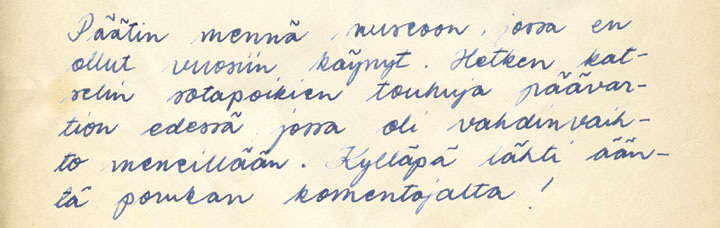 Päätin mennä museoon, jossa en
ollut vuosiin käynyt. Hetken kat-
selin sotapoikien touhuja päävar-
tion edessä, jossa oli vahdinvaih-
to meneillään. Kylläpä lähti ään-
tä porukan komentajalta!